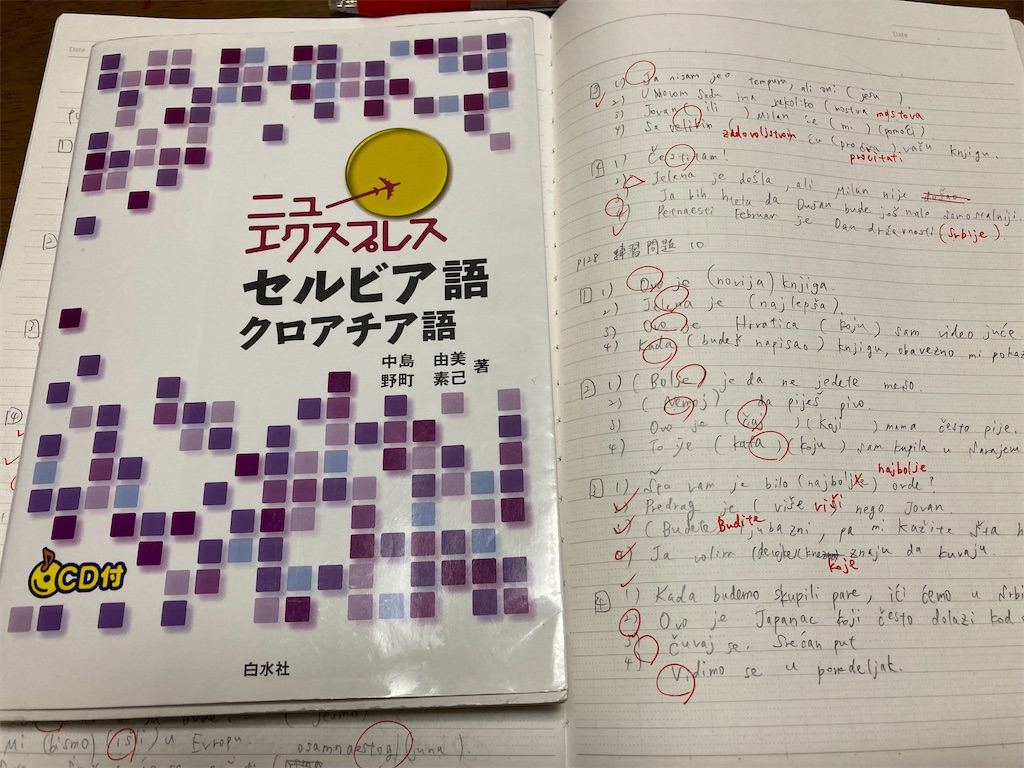 ニュー
エクスプレス
セルビア語
クロアチア語
中島 由美
野町 素己 著
CD付
白水社
Date
Date
③ 1) Ja nisam jeo tempuru, ali oni (jesu).
2) U Novom Sadu ima nekoliko (mostva mostova
3) Jovan ili ( ) Milan će (mi) (pomoći)
4) Sa velikim zadovoljstvom ću (pročita) vašu knjigu.
pročitati
④ 1) Čestitam!
2) Jelena je došla, ali Milan nije
3) Ja bih htela da Dušan bude još malo samostalniji.
4) Petnaesti Februar je Dan državnosti (Srbije)
p128 練習問題 10
① 1) Ovo je (novija) knjiga.
2) Jelena je (najlepša).
3) Ovo je Hrvatica (koju) sam video juče
4) Kada (budeš napisao) knjigu, obavezno mi pokaž
② 1) (Bolje) je da ne jedete meso.
2) (Nemoj) da piješ pivo.
3) Ovo je (čaj) (koji) mama često pije.
4) To je (kafa) (koju) sam kupila u Sarajevu
najbolje
③ 1) Šta vam je bilo (najbolje) ovde?
2) Predrag je (više viši nego Jovan
3) (Budete Budite ljubazni, pa mi kažite šta
4) Ja volim (devojke) koje znaju da kuvaju.
④ 1) Kada budemo skupili pare, ići ćemo u Srbi
2) Ovo je Japanac koji često dolazi kod
3) Čuvaj se. Srećan put
4) Vidimo se u ponedeljak.
Mi (bismo) (išli) u Evropu osamnaestog juna).